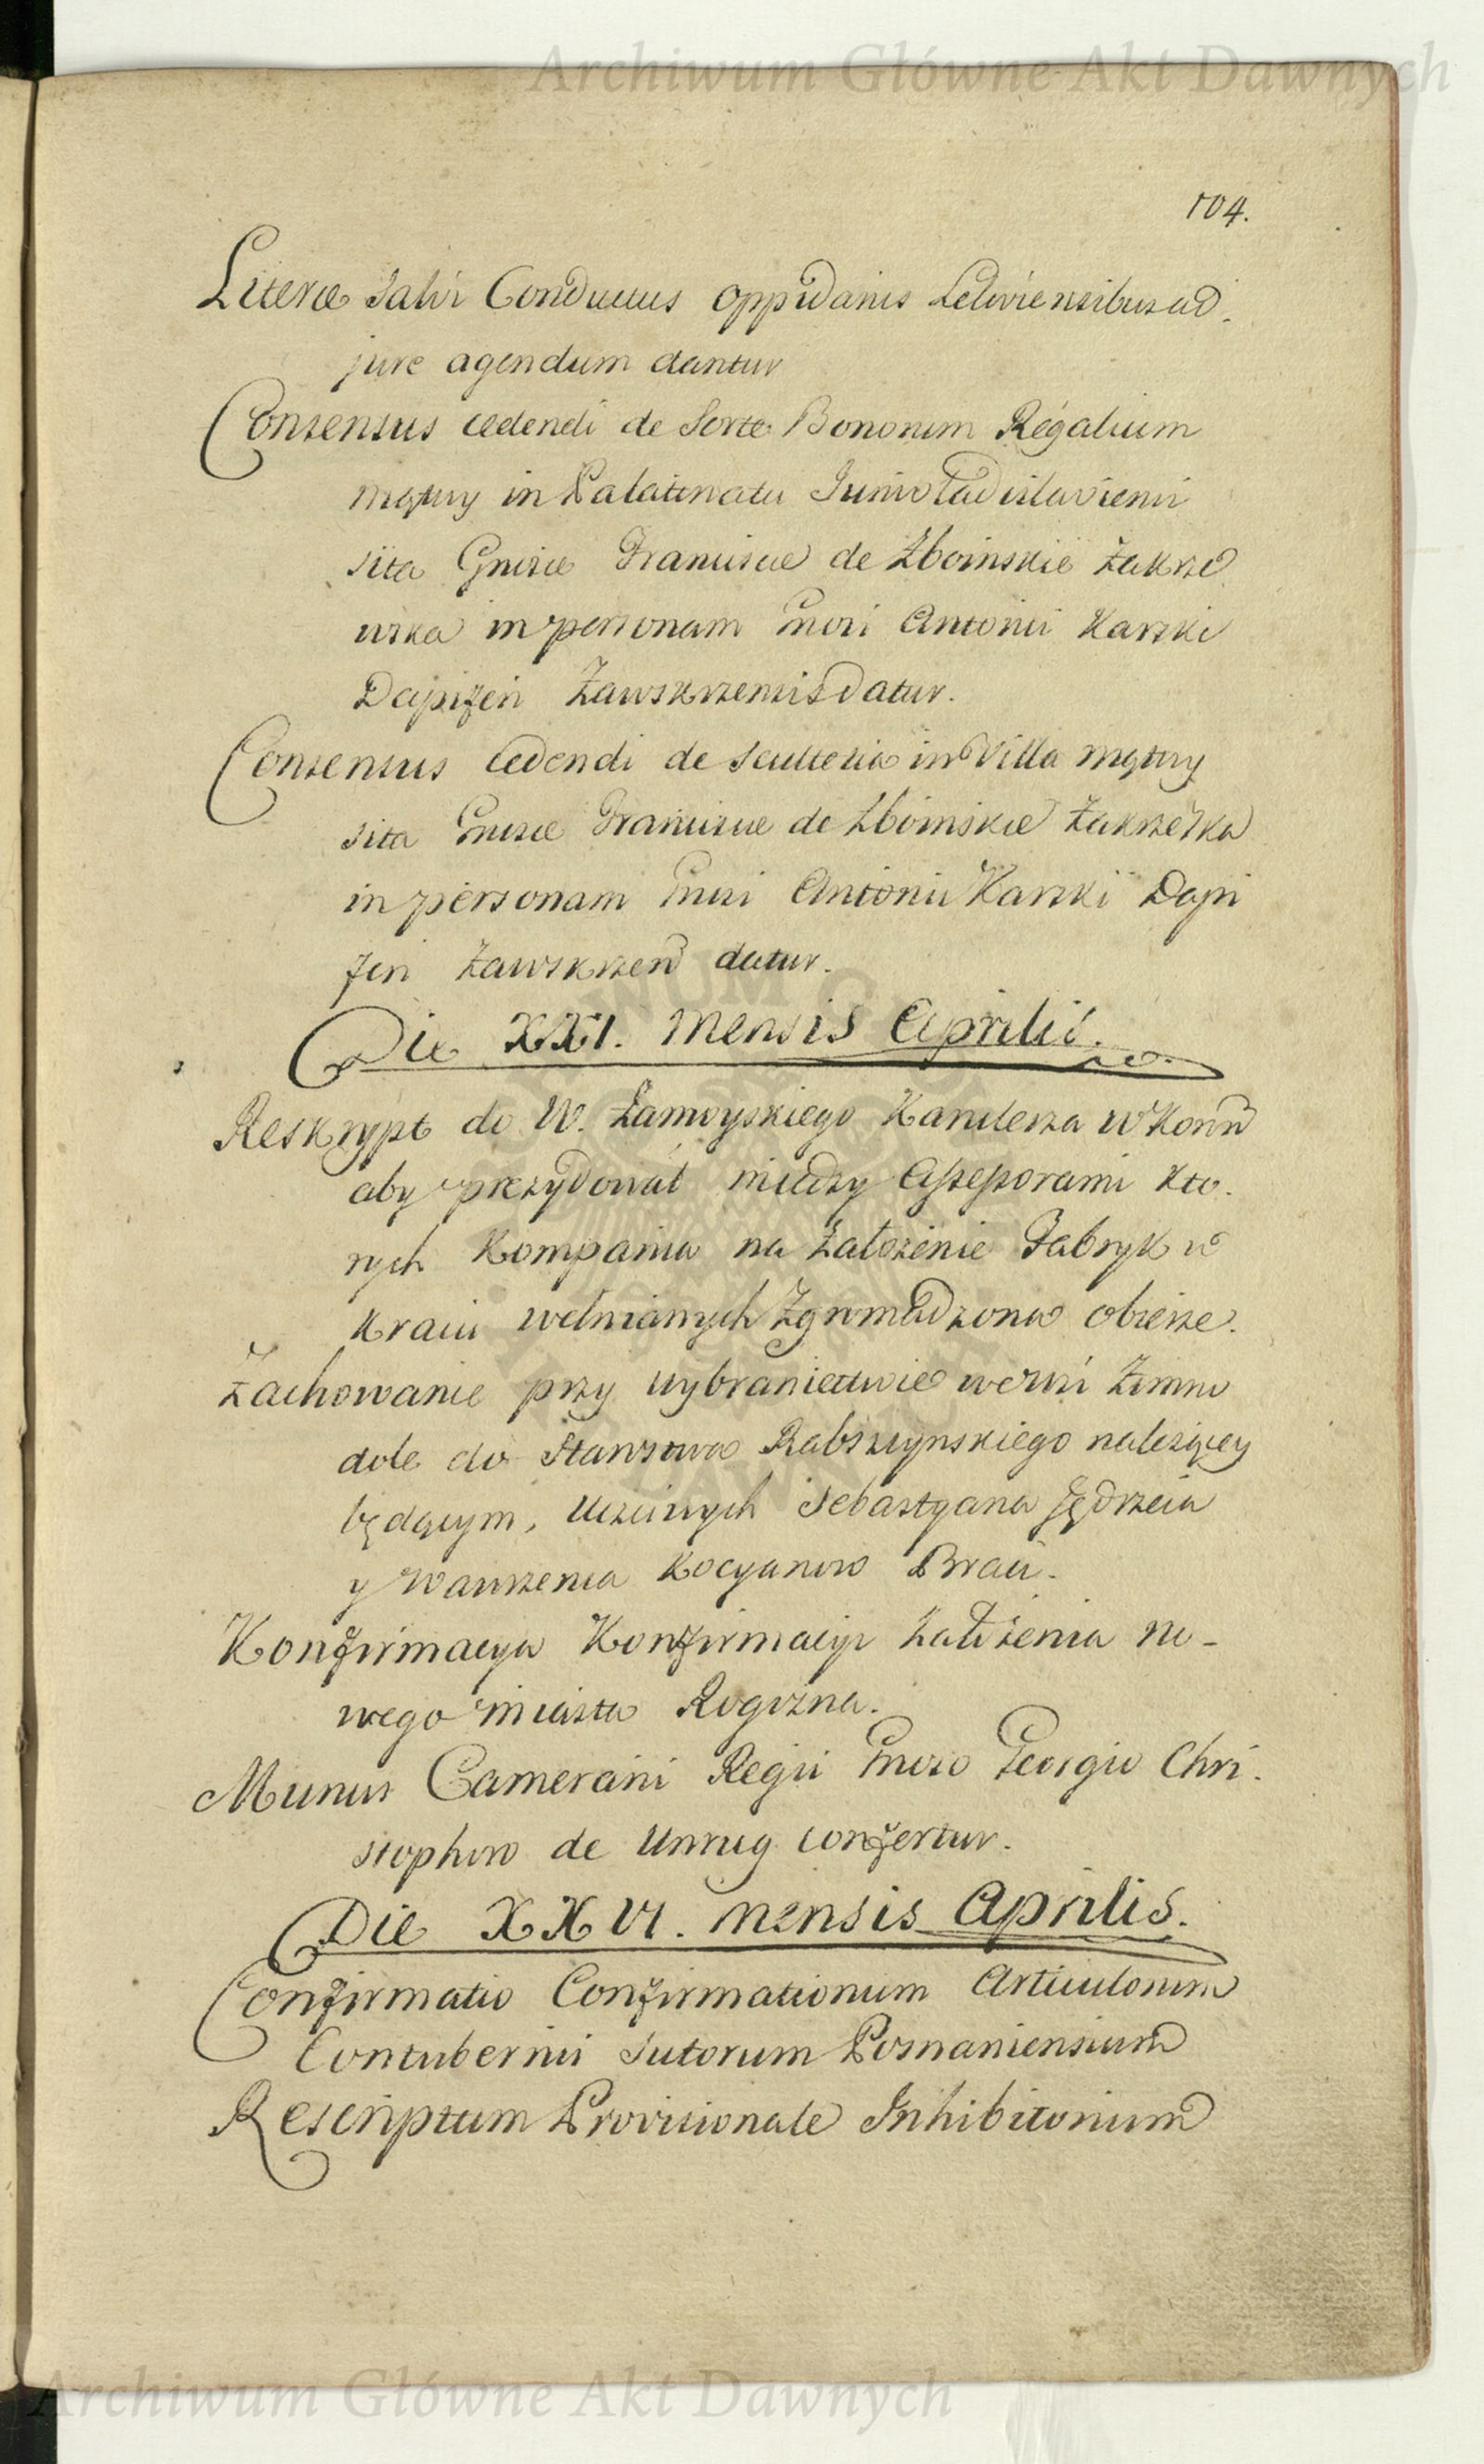 Archiwum Główne Akt Dawnych
104.
Literæ Salvi Conductus oppidanis Leloviensibus ad
jure agendum dantur
Consensus cedendi de Sorte Bonorum Regalium
Mątwy in Palatinatu Juniwladislaviensi
sita Gnosæ Franciscæ de Zboinskie Zakrze
wska in personam Gnosi Antonii Karski
Dapiferi Zawskrzensis datur.
Consensus cedendi de Scultetia in Villa Mątwy
sita Gnosæ Franciscæ de Zboinskie Zakrzeska
in personam Gnosi Antonii Karski Dapi
feri Zawskrzen datur.
Die XXI. Mensis Aprilis.
Reskrypt do W. Zamoyskiego Kanclerza W Koron
aby prezydował między Assessorami kto.
rych Kompania na Założenie Fabryk w
kraiu wełnianych Zgromadzona obierze.
Zachowanie przy wybraniectwie we wsi Zimno
dole do Starostwa Rabsztynskiego należącey
będącym, Uczciwych Sebastyana Jędrzeia
y Wawrzenca Kocyanow Braci.
Konfirmacya Konfirmacyi Założenia no-
wego miasta Rogozna.
Munus Camerarii Regii Gnoso Georgio Chri.
stophoro de Unrug confertur.
Die XXVI. mensis Aprilis.
Confirmatio Confirmationum Articulorum
Contubernii Sutorum Posnaniensium
Rescriptum Provisionale Inhibitorium
Archiwum Główne Akt Dawnych